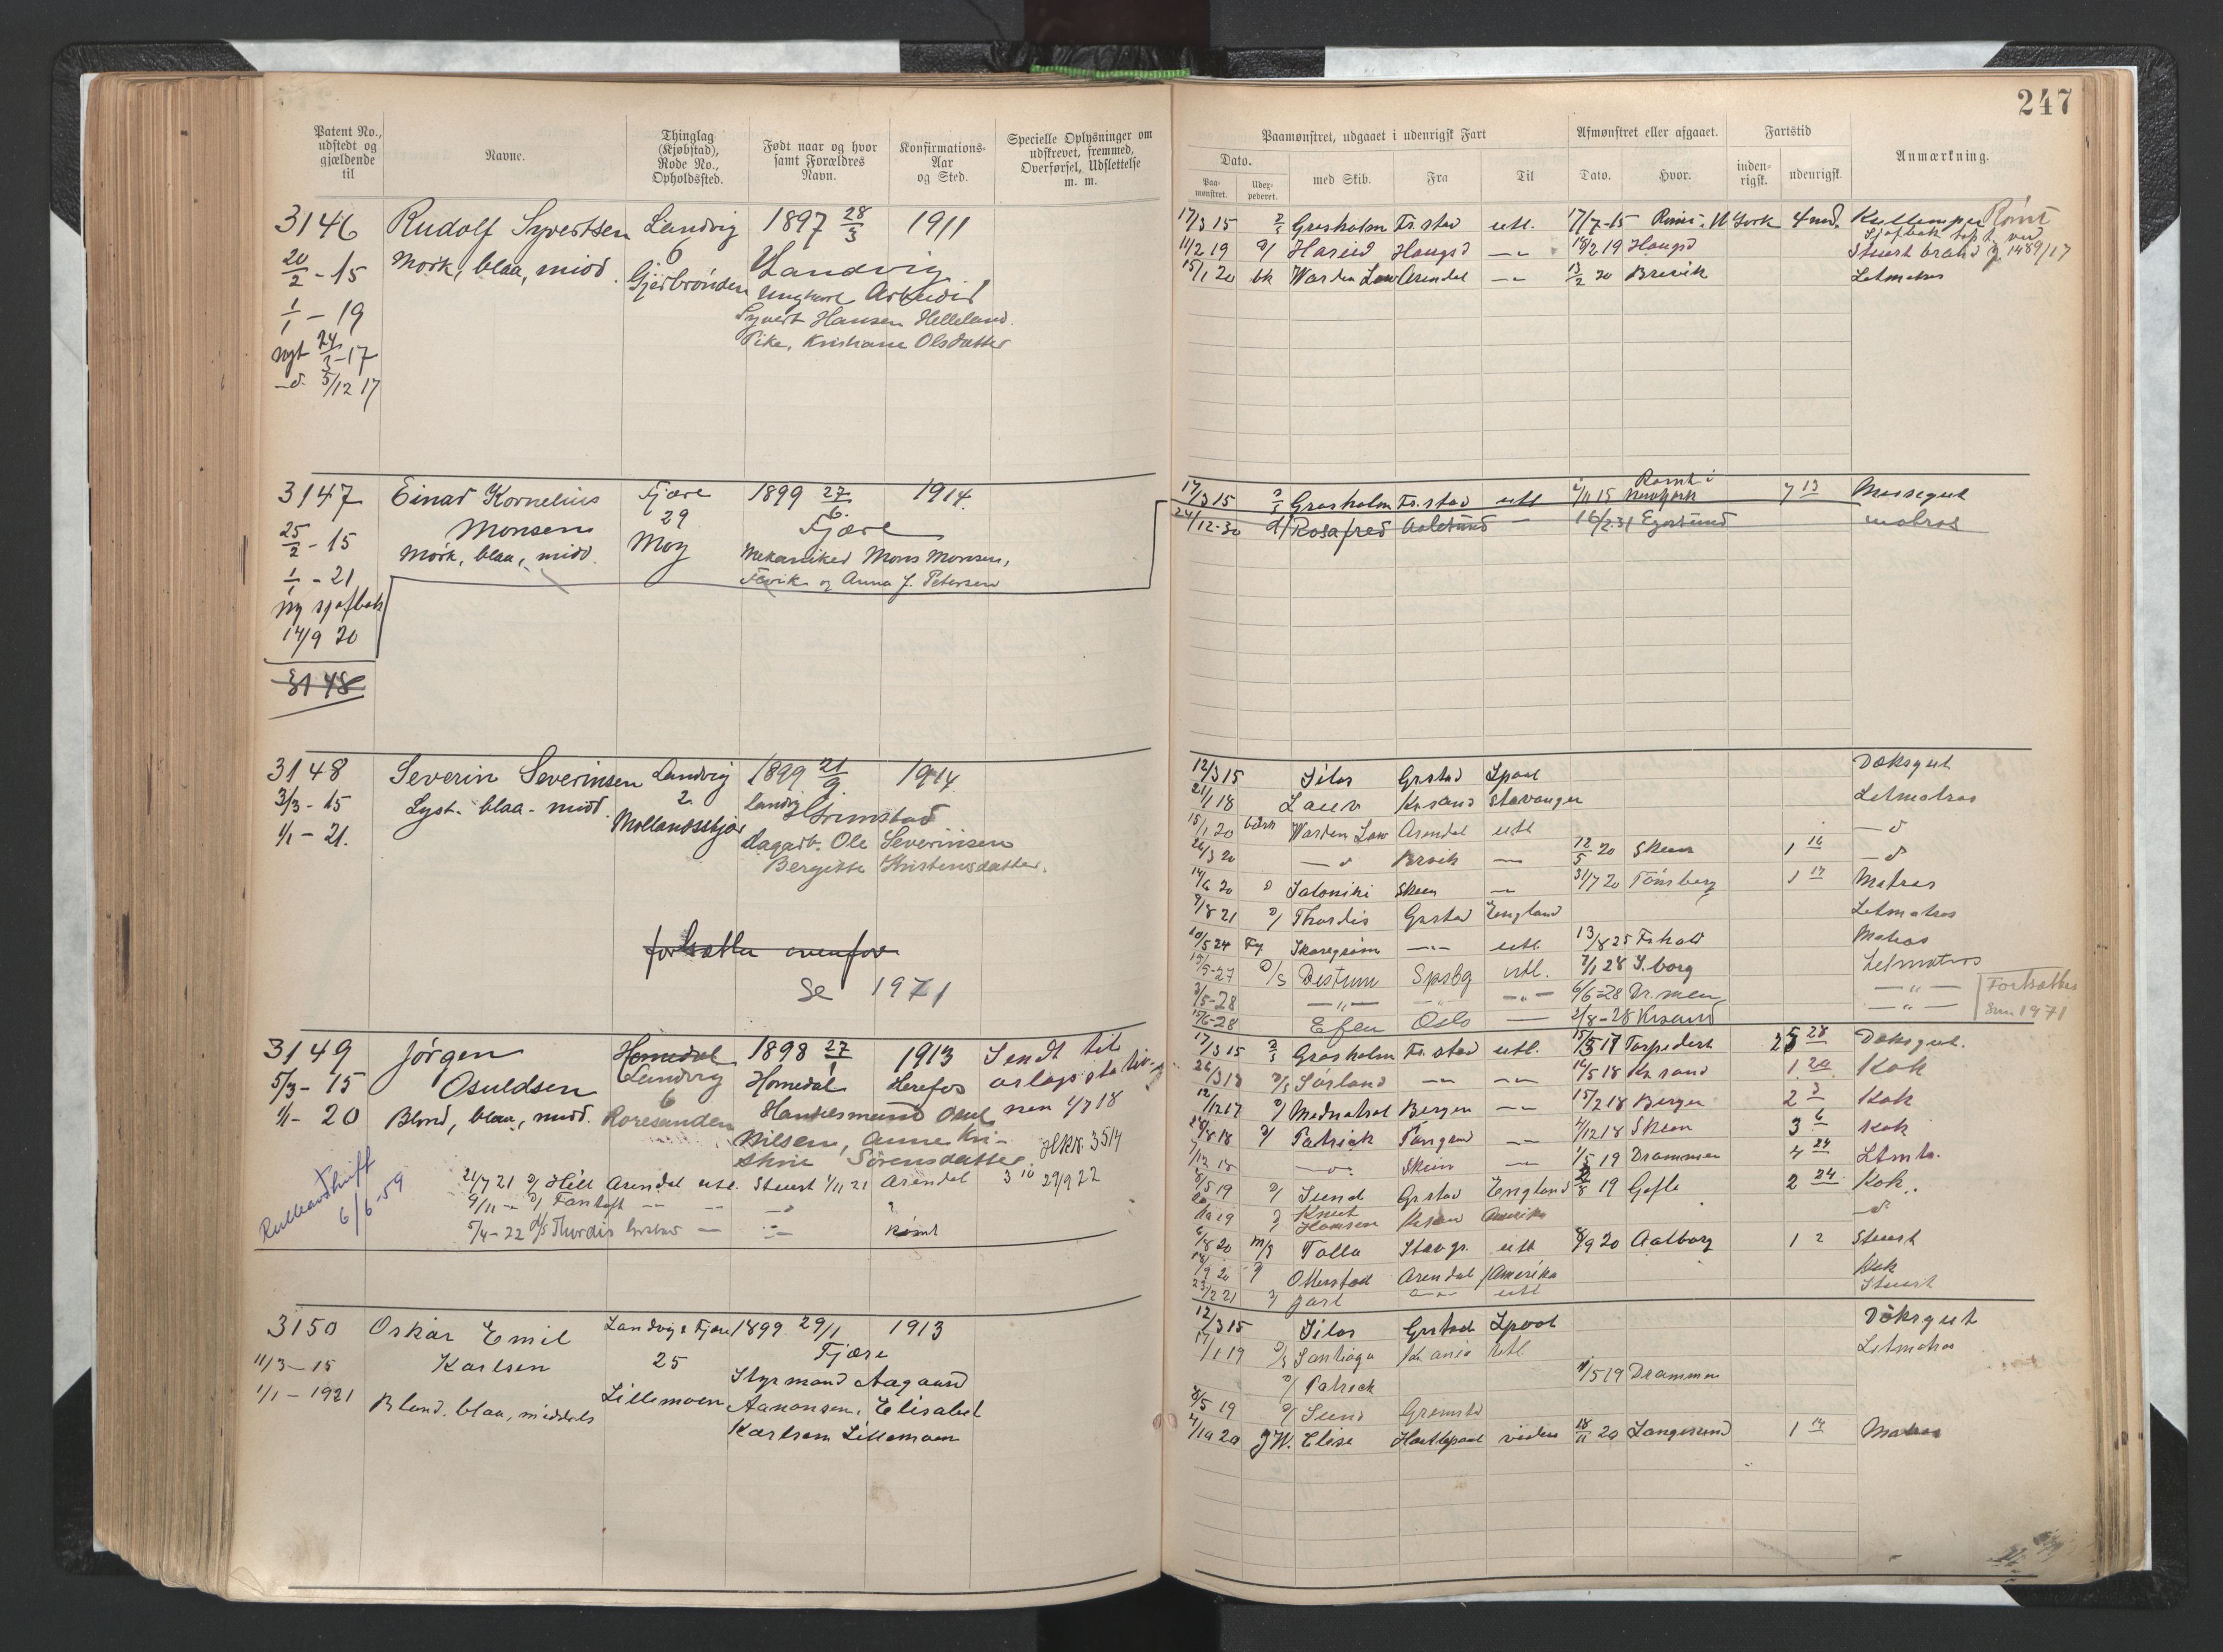 247
Patent No., udstedt og gjældende til
Navne.
Thinglag (Kjøbstad), Rode No., Opholdssted.
Født naar og hvor samt Forældres Navn.
Konfirmations-Aar og Sted.
Specielle Oplysninger om udskrevet, fremmed, Overførsel, Udslettelse m. m.
Paamønstret, udgaaet i udenrigsk Fart
Afmønstret eller afgaaet.
Fartstid
Anmærkning.
Dato.
Paa-mønstret.
Udex-pederet.
med Skib.
Fra
Til
Dato.
Hvor.
inden-rigsk.
udenrigsk.
3146 Rudolf Syvertsen Landvig 1897 28/3 1911
20/2 - 15 Mørk, blaa, midd. 6 Landvig
Gjærbrønden Ungkarl Arbeider
1/1 - 19 Syvert Hansen Helleland.
nyt 24/3-17 Pike, Kristiane Olsdatter
-d. 5/12 17
17/3 15 Grosholm Fr.stad utl. 17/7-15 Rømt. N York 4 md. Kullemper Rømt
11/2 19 Hareid Haugsd -"- 18/2 19 Haugsd Stuert
15/1 20 bk Warden Law Arendal -"- 13/2 20 Brevik Letmatros
3147 Einar Kornelius Fjære 1899 27/6. 1914.
Monsen 29 Fjære
25/2 - 15 Mørk, blaa, midd. Moy Mekaniker Mons Monsen,
1/1 - 21 Fevik og Anna J. Petersen
ny sjøfbok
14/9 20
3148
17/3 15 Grosholm Fr.stad utl Rømt i Newyork 7 13 Messegut
24/12-30 Rosafred Aalesund - 16/2.31 Egersund matros
3148 Severin Severinsen Landvig 1899 21/9. 1914.
3/3 - 15 Lyst. blaa - midd. 2. Landvig Grimstad
1/1 - 21. Mollandsskjær dagarb. Ole Severinsen
Bergitte Kristensdatter.
fortsætter ovenfor
Se 1971
12/3 15 Silas Grstad Lpool Dæksgut
21/1 18 Lauv Kr.sand Stavanger Letmatros
15/1 20 bark Warden Law Arendal utl -d
26/3 20 -d Brvik - 12/5 20 Skien 1 16 -d
14/6 20 Saloniki Skien - 31/7 20 Tønsberg 1 17 Matros
9/8 21 Thordis Grstad England Letmatros
10/5 24 Skaregrøm -"- utl. 13/8 25 Fr.hald Matros
15/5-27 D/S Bestum Spsbg utl. 7/1 28 S.borg Letmatros
3/5-28 -"- -"- -"- 6/6-28 Dr.men -"- Fortsættes
15/6-28 Efen Oslo - 2/8-28 Krsand -"- Snr 1971
3149 Jørgen Homedal 1898 27/1 1913 Sendt til
5/3 - 15 Osuldsen Landvig Homedal Herefos orlogsstatio-
1/1 - 20 Blond, blaa, midd. 6 Roresanden Handelsmand Osul nen 1/7 18
Nilsen, Anne Kri- H.R.Nr. 3514
stine Sørensdatter 29/9 22
21/7 21 Hill Arendal utl. Stuert 1/11 21 Arendal 3 10
9/11 -"- Fantoft -"-
5/4 - 22 D/S Thordis Grstad - rømt
6/6-59
17/3 15 Grosholm Fr.stad utl. Torpedert 28 Dæksgut.
26/3 18 D/S Sørland -"- -"- 16/5 18 Kr sand 1 20 Kok
12/12 17 Bergen -"- 15/2 18 Bergen 2 3 Kok
28/8 18 Patrick Tangen -"- 4/12 18 Skien 3 6 Kok
1/12 18 -d- Skien - 1/5 19 Drammen 4 24 Ltmtr.
8/5 19 Sund Grstad England 2/8 19 Gefle 2 24 Kok.
Knut Hamsun Krsan Amerika -d
6/8 20 m/s Tolla Stavgr. utl 8/9 20 Aalborg 1 2 Stuert
Otterstad Arendal Amerika Kok
23/2 21 Jarl -"- utl Stuert
3150 Oskar Emil Landvig & Fjære 1899 29/1 1913
11/3 - 15 Karlsen 25 Fjære
1/1 - 1921 Blond, blaa, middels Lillemoen Styrmand Aagaard
Aanonsen, Elisabet
Karlsen Lillemoen
12/3 15 Silas Grstad Lpool Dæksgut
17/1 19 D/S Santiago Kr.ania Utl. Letmatros
Patrick 1/5 19 Drammen
8/5 19 Sund Grimstd
4/10 20 Elise Hartlepool viden 18/11 20 Langesund 1 14 Matros